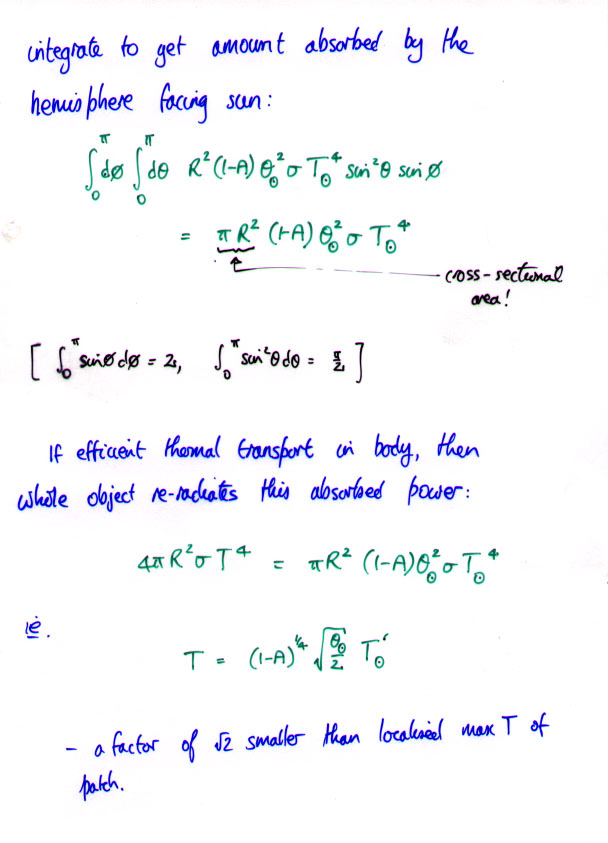 integrate to get amount absorbed by the
hemisphere facing sun:
∫₀^π dø ∫₀^π dθ R²(1-A) θ_⊙² σ T_⊙⁴ sin²θ sin ø
= πR² (1-A) θ_⊙² σ T_⊙⁴
cross-sectional
area!
[ ∫₀^π sinø dø = 2, ∫₀^π sin²θ dθ = π/2 ]
If efficient thermal transport in body, then
whole object re-radiates this absorbed power:
4πR²σT⁴ = πR² (1-A)θ_⊙² σ T_⊙⁴
ie.
T = (1-A)^¼ √(θ_⊙/2) T_⊙
- a factor of √2 smaller than localised max T of
patch.